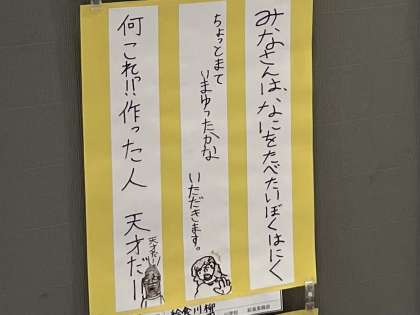 みなさんは、なにをたべたいぼくはにく
ちょっとまて
いまゆったかな
いただきます。
何これっ!!作った人 天才だー
天才だ!
給食川柳